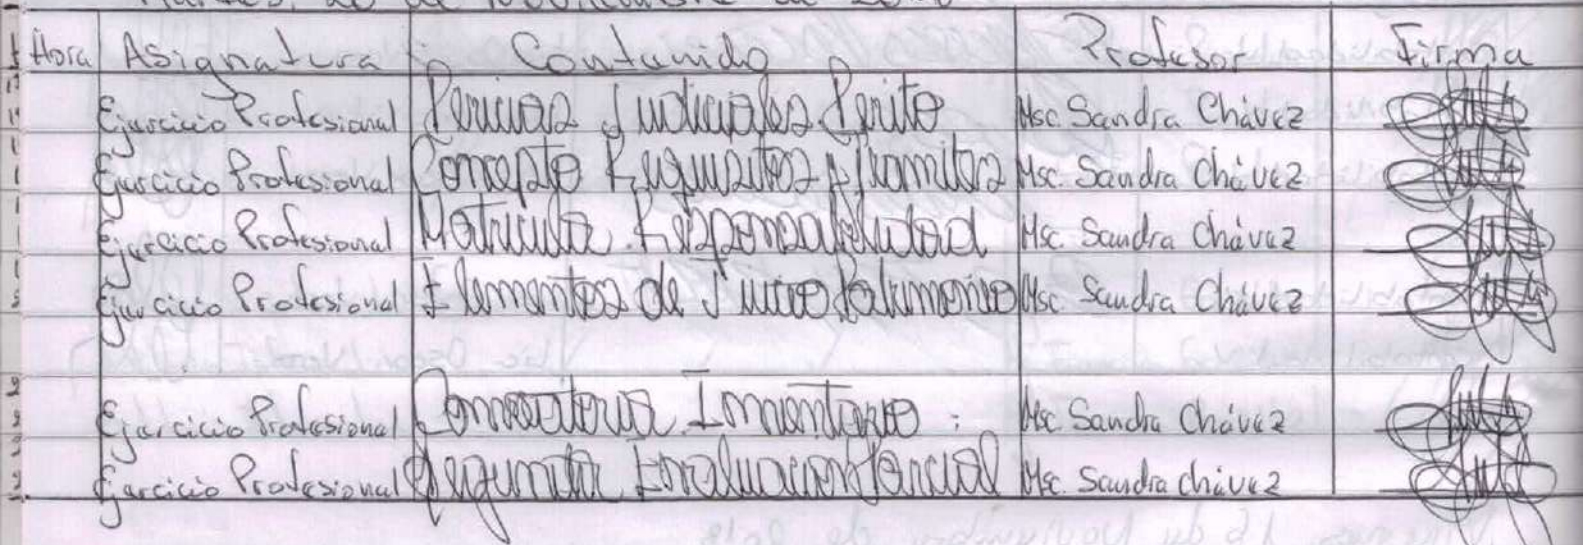 Martes, 20 de Noviembre de 2018
Hora Asignatura Contenido Profesor Firma
Ejercicio Profesional Pericias Judiciales Perito Msc. Sandra Chávez
Ejercicio Profesional Concepto Requisitos y Tramites Msc. Sandra Chávez
Ejercicio Profesional Matricula. Responsabilidad Msc. Sandra Chávez
Ejercicio Profesional Elementos de Juicio Patrimonio Msc. Sandra Chávez
Ejercicio Profesional Inventario : Msc. Sandra Chávez
Ejercicio Profesional Segunda Evaluacion Parcial Msc. Sandra Chávez